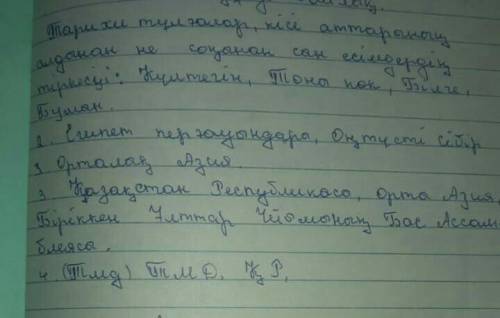 Тарихи тұлғалар, кісі аттарының
алданан не соңанан сан есімдердің
тіркесуі: Күлтегін, Тоны көк, Білге,
Буман.
2. Египет перғауындара, Оңтүсті Сібір
Орталақ Азия.
3 Қазақстан Республикасо, Орта Азия,
Біріккен Ұлттар Ұйымоның Бас Ассам
блеясо.
4. (Тмд) ТМД, ҚР,